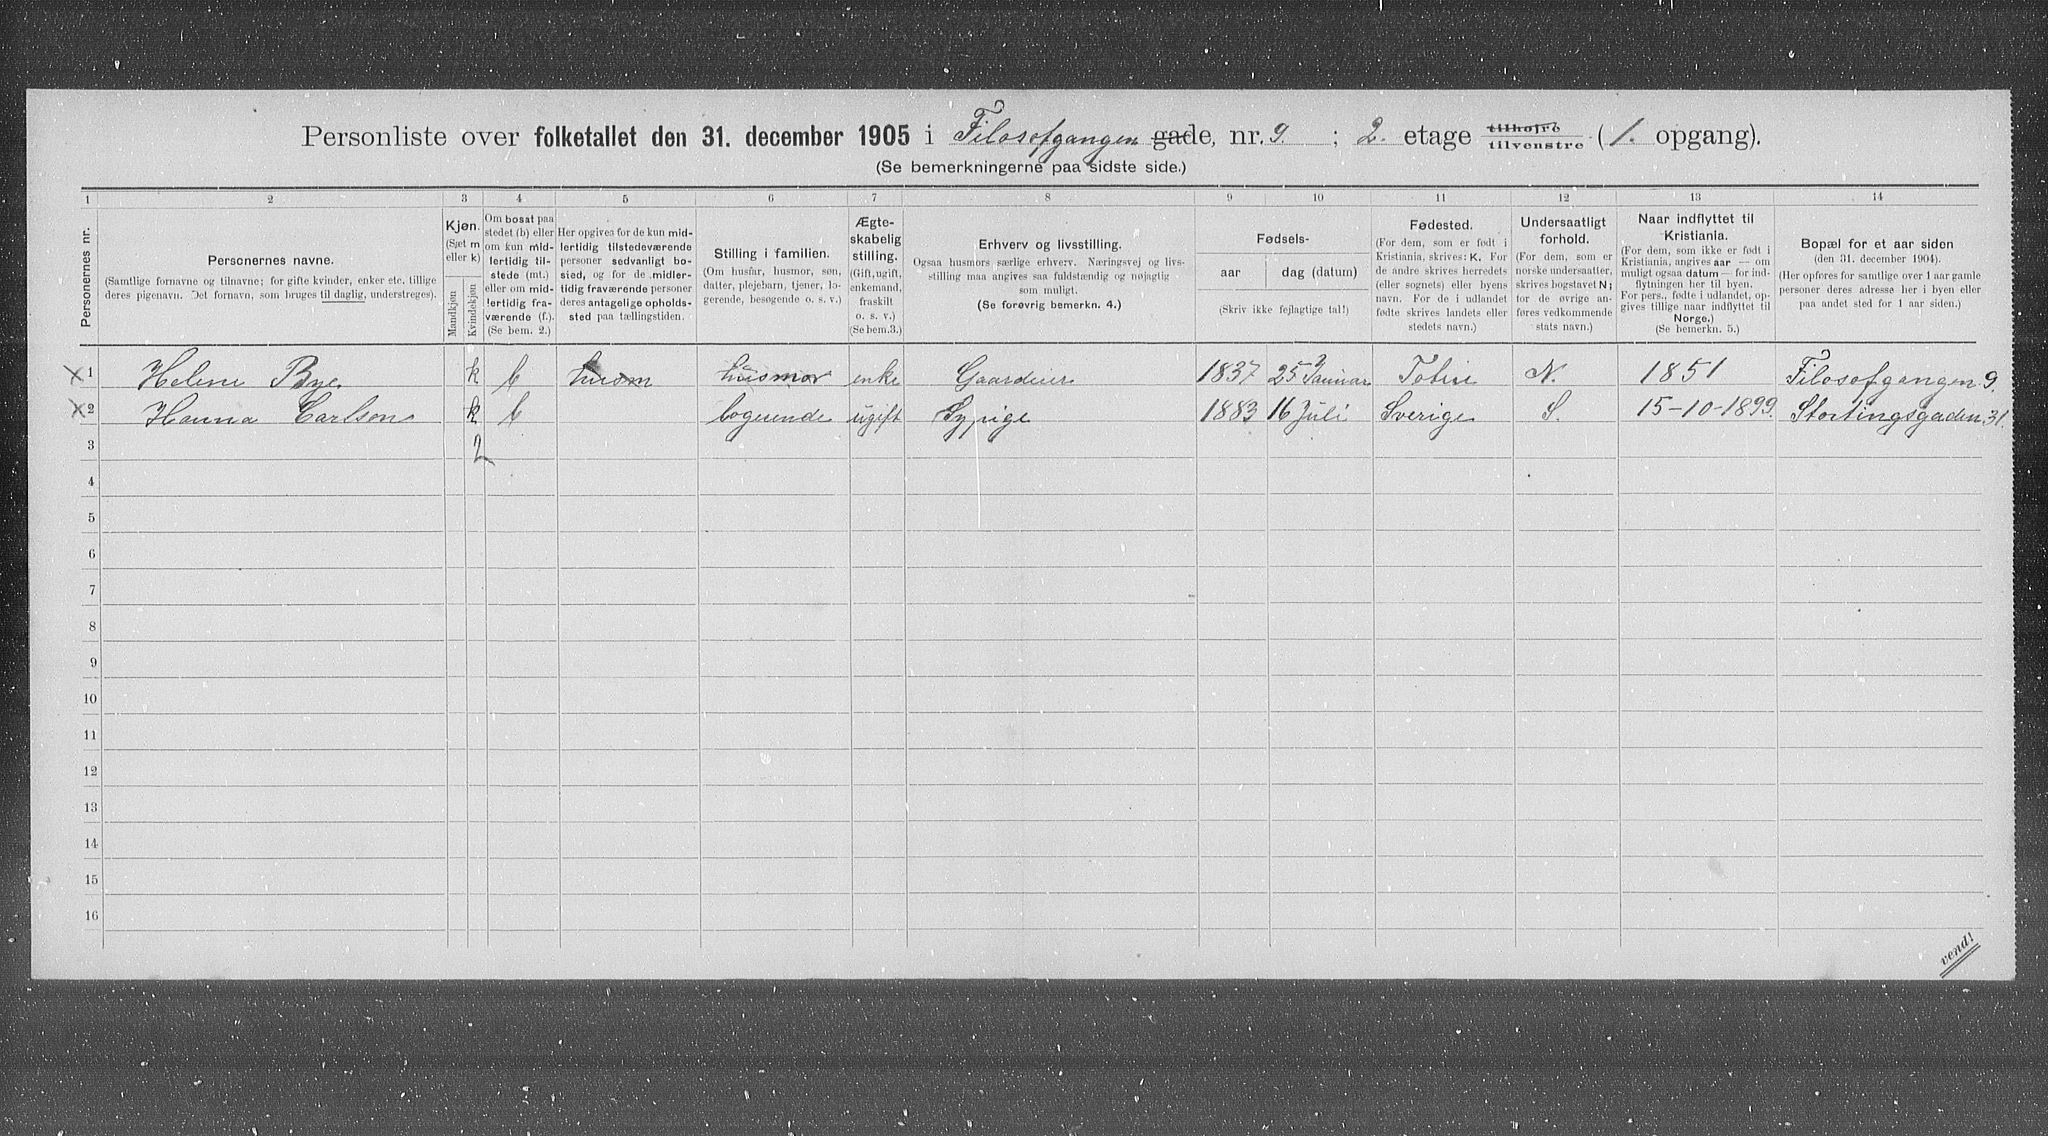 Personliste over folketallet den 31. december 1905 i Filosofgangen gade, nr. 9. ; 2. etage tilhøjre tilvenstre (1. opgang).
(Se bemerkningerne paa sidste side.)
1 2 3 4 5 6 7 8 9 10 11 12 13 14
Personernes nr.
Personernes navne.
(Samtlige fornavne og tilnavne; for gifte kvinder, enker etc. tillige
deres pigenavn. Det fornavn, som bruges til daglig, understreges).
Kjøn.
(Sæt m
eller k)
Mandkjøn
Kvindekjøn
Om bosat paa
stedet (b) eller
om kun mid-
lertidig til-
stede (mt.)
eller om mid-
lertidig fra-
værende (f.)
(Se bem. 2.)
Her opgives for de kun mid-
lertidig tilstedeværende
personer sedvanligt bo-
sted, og for de midler-
tidig fraværende personer
deres antagelige opholds-
sted paa tællingstiden.
Stilling i familien.
(Om husfar, husmor, søn,
datter, plejebarn, tjener, lo-
gerende, besøgende o. s. v.)
Ægte-
skabelig
stilling.
(Gift, ugift,
enkemand,
fraskilt
o. s. v.)
(Se bem.3.)
Erhverv og livsstilling.
Ogsaa husmors særlige erhverv. Næringsvej og livs-
stilling maa angives saa fuldstændig og nøjagtig
som muligt.
(Se forøvrig bemerkn. 4.)
Fødsels-
aar
dag (datum)
(Skriv ikke fejlagtige tal!)
Fødested.
(For dem, som er født i
Kristiania, skrives: K. For
de andre skrives herredets
(eller sognets) eller byens
navn. For de i udlandet
fødte skrives landets eller
stedets navn.)
Undersaatligt
forhold.
(For dem, som er
norske undersaatter,
skrives bogstavet N;
for de øvrige an-
føres vedkommende
stats navn.)
Naar indflyttet til
Kristiania.
(For dem, som ikke er født i
Kristiania, angives aar — om
muligt ogsaa datum — for ind-
flytningen her til byen.
For pers., fødte i udlandet, op-
gives tillige naar indflyttet til
Norge.)
(Se bemerkn. 5.)
Bopæl for et aar siden
(den 31. december 1904).
(Her opføres for samtlige over 1 aar gamle
personer deres adresse her i byen eller
paa andet sted for 1 aar siden.)
1 Helene Bye k b husm husmor enke Gaardeier 1837 25 Januar N. 1851 Filosofgangen 9.
2 Hanna Carlson k b logerende ugift Sypige 1883 16 Juli Sverige S. 15-10-1899. Stortingsgaden 31.
3 2
4
5
6
7
8
9
10
11
12
13
14
15
16
vend!